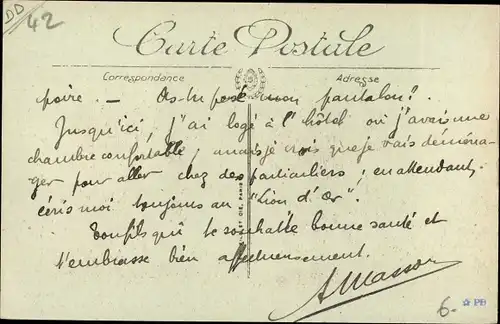 DD
42
Carte Postale
Correspondance
Adresse
poire. — As-tu posé mon pantalon?
Jusqu'ici, j'ai logé à l'hôtel où j'avais une
chambre confortable, mais je crois que je vais déména-
ger pour aller chez des particuliers; en attendant,
écris moi toujours au "Lion d'Or".
Ton fils qui te souhaite bonne santé et
t'embrasse bien affectueusement.
AMasson
ET CIE, PARIS
6.-
PB